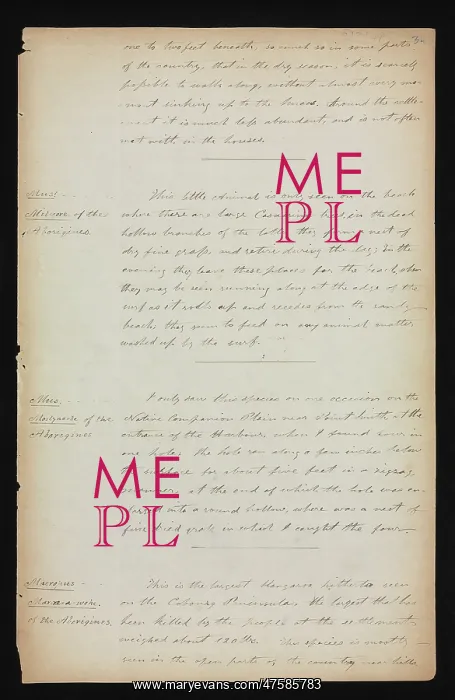 one to two feet beneath, so much so in some parts
of the country, that in the dry season, it is scarcely
possible to walk along, without almost every mo-
-ment sinking up to the knees. Around the settle-
-ment it is much less abundant, and is not often
met with in the houses.
Mus? -
Mirune of the
Aborigines.
This little Animal is only seen on the beach
where there are large Casuarina trees, in the dead
hollow branches of the latter they form a nest of
dry fine grass, and retire during the day; In the
evening they leave these places for the beach, when
they may be seen running along at the edge of the
surf as it rolls up and recedes from the sandy
beach, they seem to feed on any animal matter
washed up by the surf.
Mus. -
of the
Aborigines
I only saw this species on one occasion on the
Native Companion Plain near Point Smith at the
entrance of the Harbour, when I found four in
one hole. The hole ran along a few inches below
the surface for about five feet in a zigzag
manner, at the end of which the hole was en-
into a round hollow, where was a nest of
fine dried grass in which I caught the four.
Macropus -
of the Aborigines.
This is the largest Kangaroo hitherto seen
on the Cobourg Peninsula. The largest that has
been killed by the people at the settlement
weighed about 120 lbs. The species is mostly
seen in the open parts of the country near
ME
PL
ME
PL
www.maryevans.com/47585783